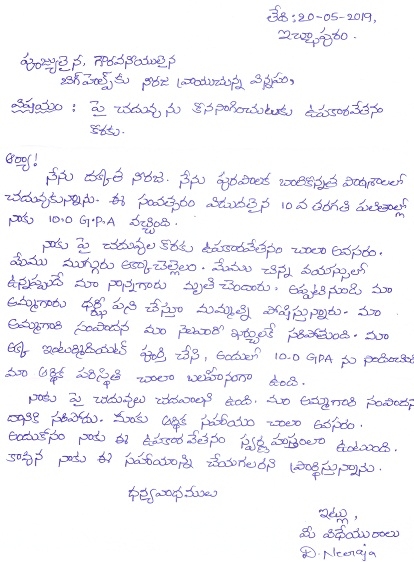 తేది: 20-05-2019,
ఇచ్ఛాపురం.
పూజ్యులైన, గౌరవనీయులైన
బిగ్‌హెల్ప్‌కు నీరజ వ్రాయుచున్న విన్నపం,
విషయం : పై చదువును కొనసాగించుటకు ఉపకారవేతనం
కొరకు.
ఆర్యా!
నేను దక్కత నీరజ. నేను పురపాలక బాలికోన్నత పాఠశాలలో
చదువుకున్నాను. ఈ సంవత్సరం విడుదలైన 10 వ తరగతి ఫలితాల్లో
నాకు 10.0 G.P.A వచ్చింది.
నాకు పై చదువుల కొరకు ఉపకారవేతనం చాలా అవసరం.
మేము ముగ్గురు అక్కాచెల్లెలం. మేము చిన్న వయస్సులో
ఉన్నప్పుడే మా నాన్నగారు మృతి చెందారు. అప్పటినుండి మా
అమ్మగారు టైలర్ పని చేస్తూ మమ్మల్ని పోషిస్తున్నారు. మా
అమ్మగారి సంపాదన మా నెలవారీ ఖర్చులకే సరిపోతుంది. మా
అక్క ఇంటర్మీడియట్ పూర్తి చేసి, అందులో 10.0 GPA ను సాధించింది
మా ఆర్థిక పరిస్థితి చాలా బలహీనంగా ఉంది.
నాకు పై చదువులు చదవాలని ఉంది. మా అమ్మగారి సంపాదన
దానికి సరిపోదు. మాకు ఆర్థిక సహాయం చాలా అవసరం.
అందుకోసం నాకు ఈ ఉపకారవేతనం స్వర్ణహస్తంలా ఉంటుంది.
కావున నాకు ఈ సహాయాన్ని చేయగలరని ప్రార్థిస్తున్నాను.
ధన్యవాదములు
ఇట్లు,
మీ విధేయురాలు
D. Neeraja